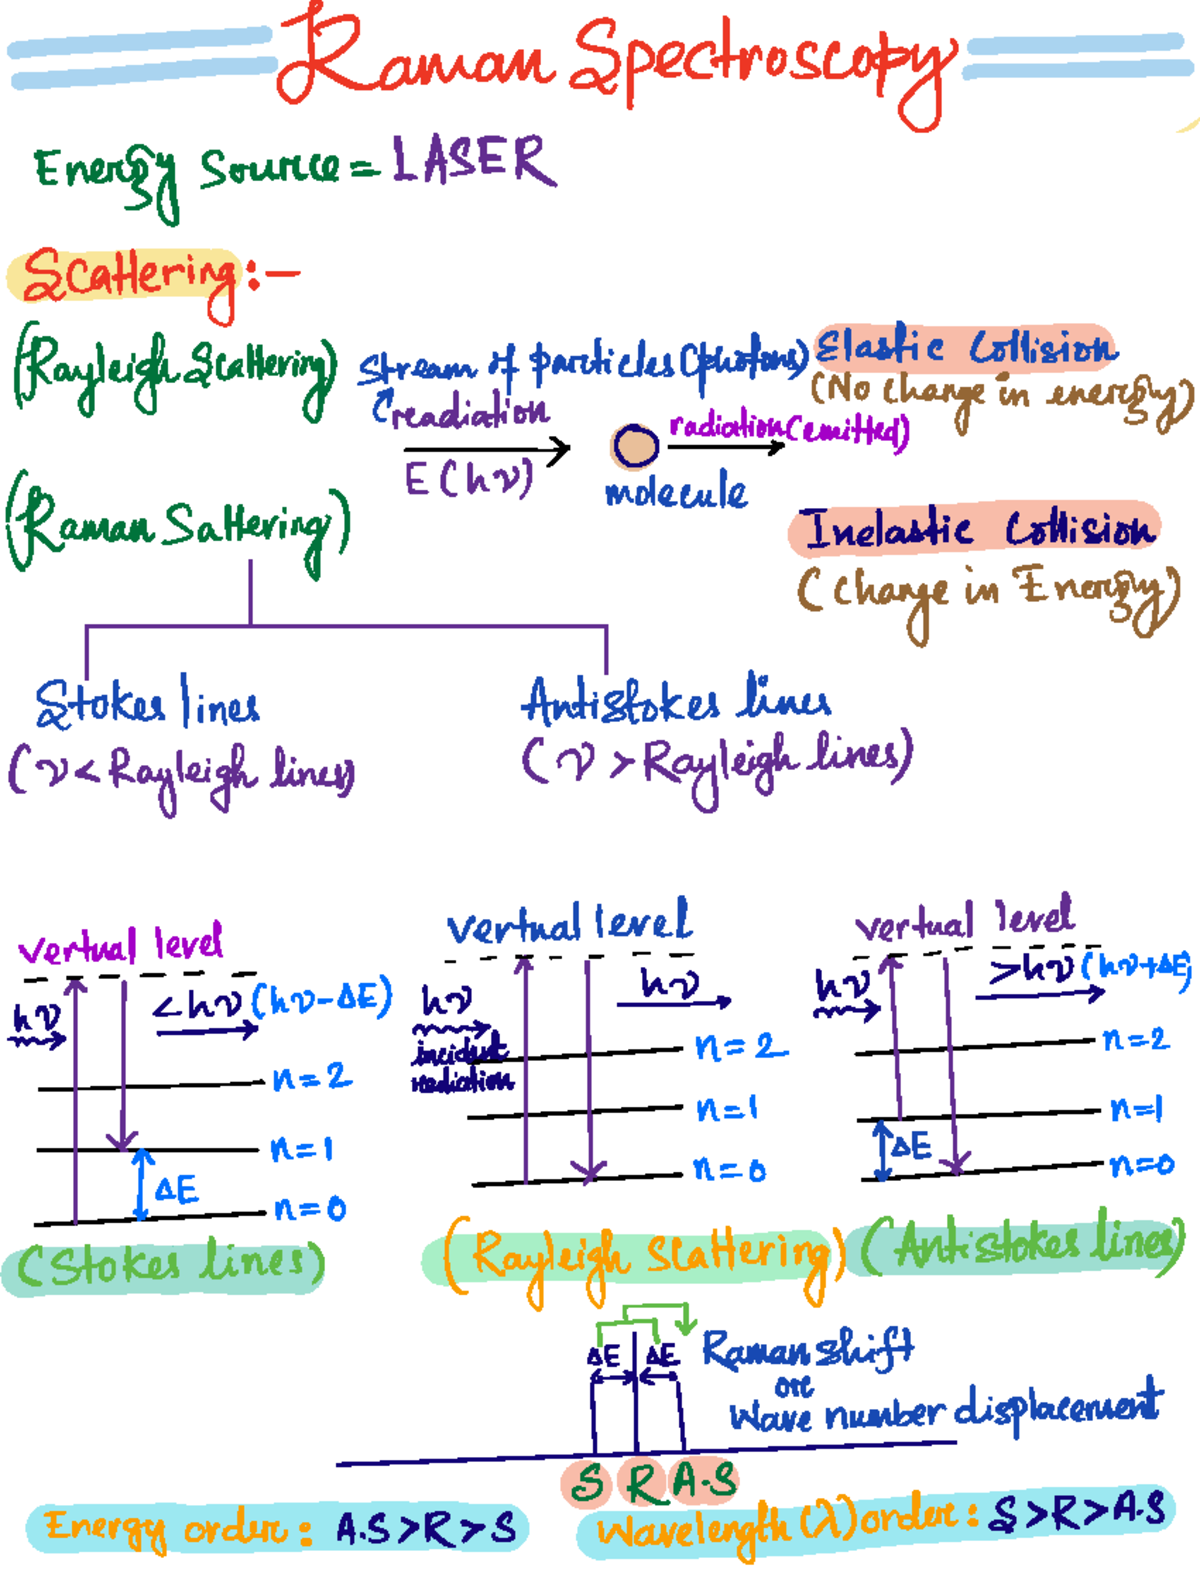 Raman Spectroscopy
Energy Source = LASER
Scattering :-
(Rayleigh Scattering)
Stream of particles (photons)
Elastic Collision
(No change in energy)
readiation
radiation (emitted)
E (hν)
molecule
(Raman Sattering)
Inelastic Collision
(Change in Energy)
Stokes lines
Antistokes lines
(ν < Rayleigh lines)
(ν > Rayleigh lines)
vertual level
hν
<hν (hν-ΔE)
n=2
n=1
ΔE
n=0
(Stokes lines)
vertual level
hν
incident
radiation
hν
n=2
n=1
n=0
(Rayleigh scattering)
vertual level
hν
>hν (hν+ΔE)
n=2
n=1
ΔE
n=0
(Antistokes lines)
ΔE ΔE
Raman shift
or
Wave number displacement
S R A.S
Energy order : A.S > R > S
Wavelength (λ) order : S > R > A.S